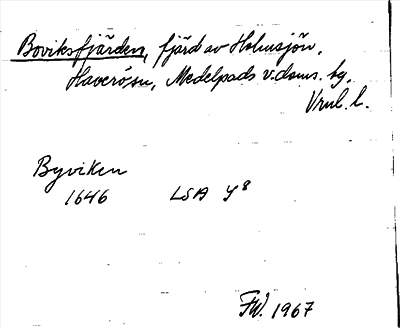 Boviksfjärden, fjärd av Holmsjön.
Haverö sn, Medelpads v. doms. hg.
Vrnl. l.
Byviken
1646 LSA Y8
FW. 1967